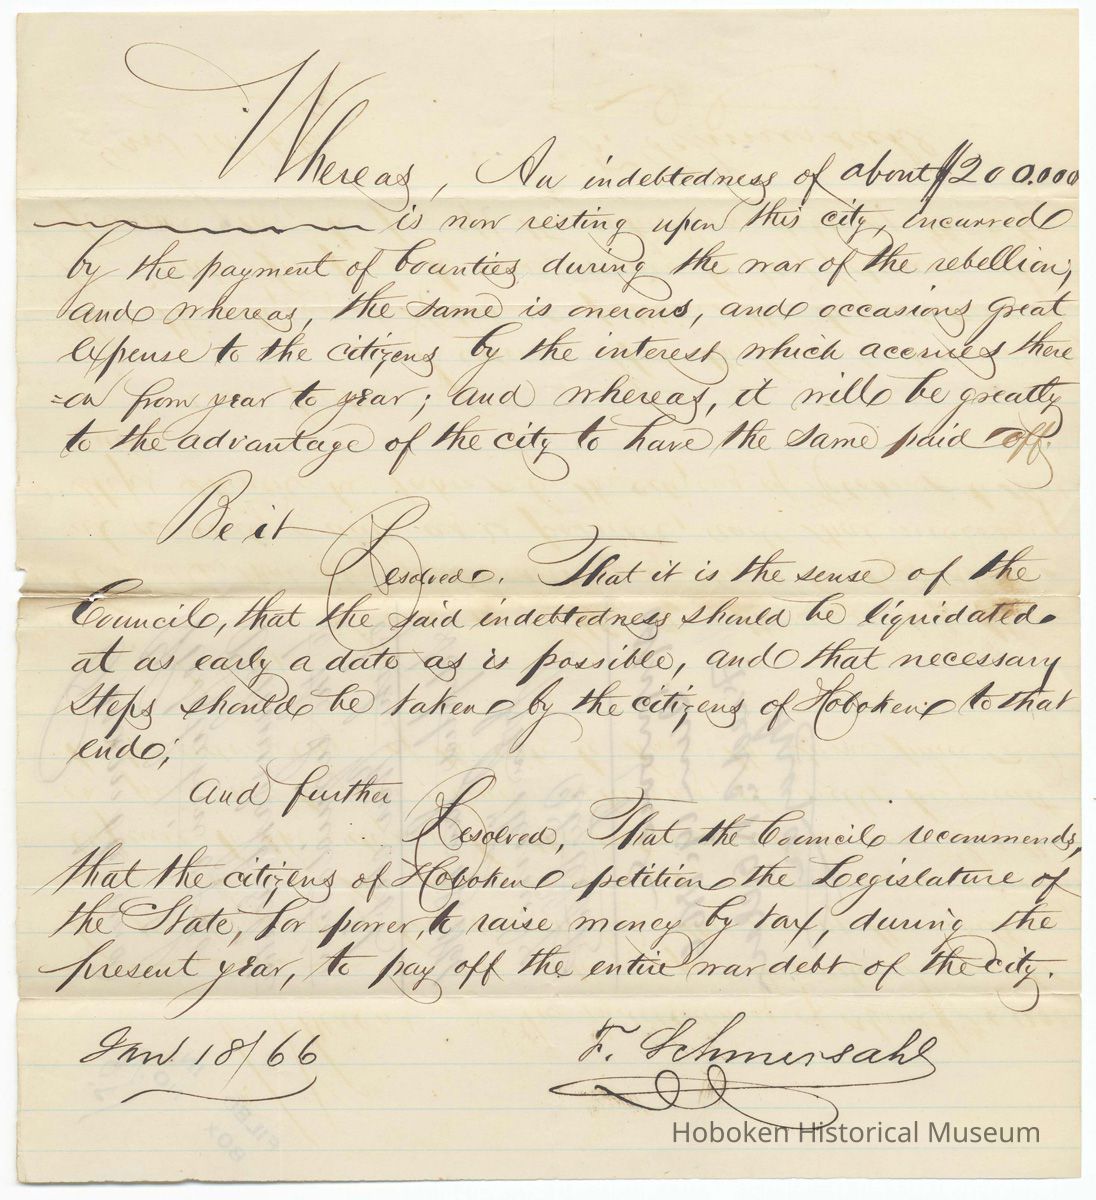 Whereas, An indebtedness of about $200.000
is now resting upon this city, incurred
by the payment of bounties during the war of the rebellion;
and whereas, the same is onerous, and occasions great
expense to the citizens by the interest which accrues there
=on from year to year; and whereas, it will be greatly
to the advantage of the city to have the same paid off.
Be it
Resolved. That it is the sense of the
Council, that the said indebtedness should be liquidated
at as early a date as is possible, and that necessary
steps should be taken by the citizens of Hoboken to that
end;
and further
Resolved, That the Council recommends,
that the citizens of Hoboken petition the Legislature of
the State, for power, to raise money by tax, during the
present year, to pay off the entire war debt of the city.
Jan 18/66
F. Schmersahl
Hoboken Historical Museum